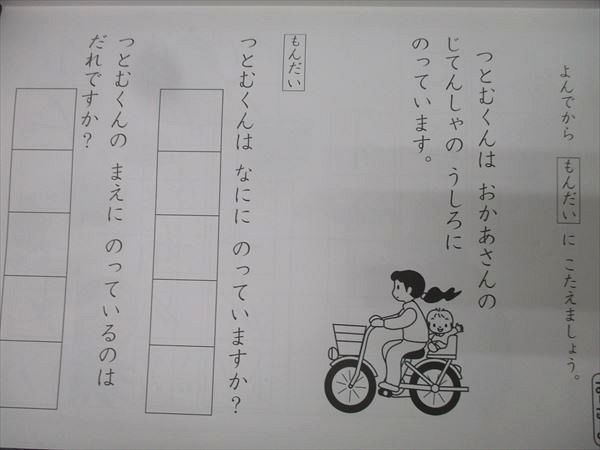 よんでから もんだい に こたえましょう。
つとむくんは おかあさんの
じてんしゃの うしろに
のっています。
もんだい
つとむくんは なにに のっていますか?
つとむくんの まえに のっているのは
だれですか?